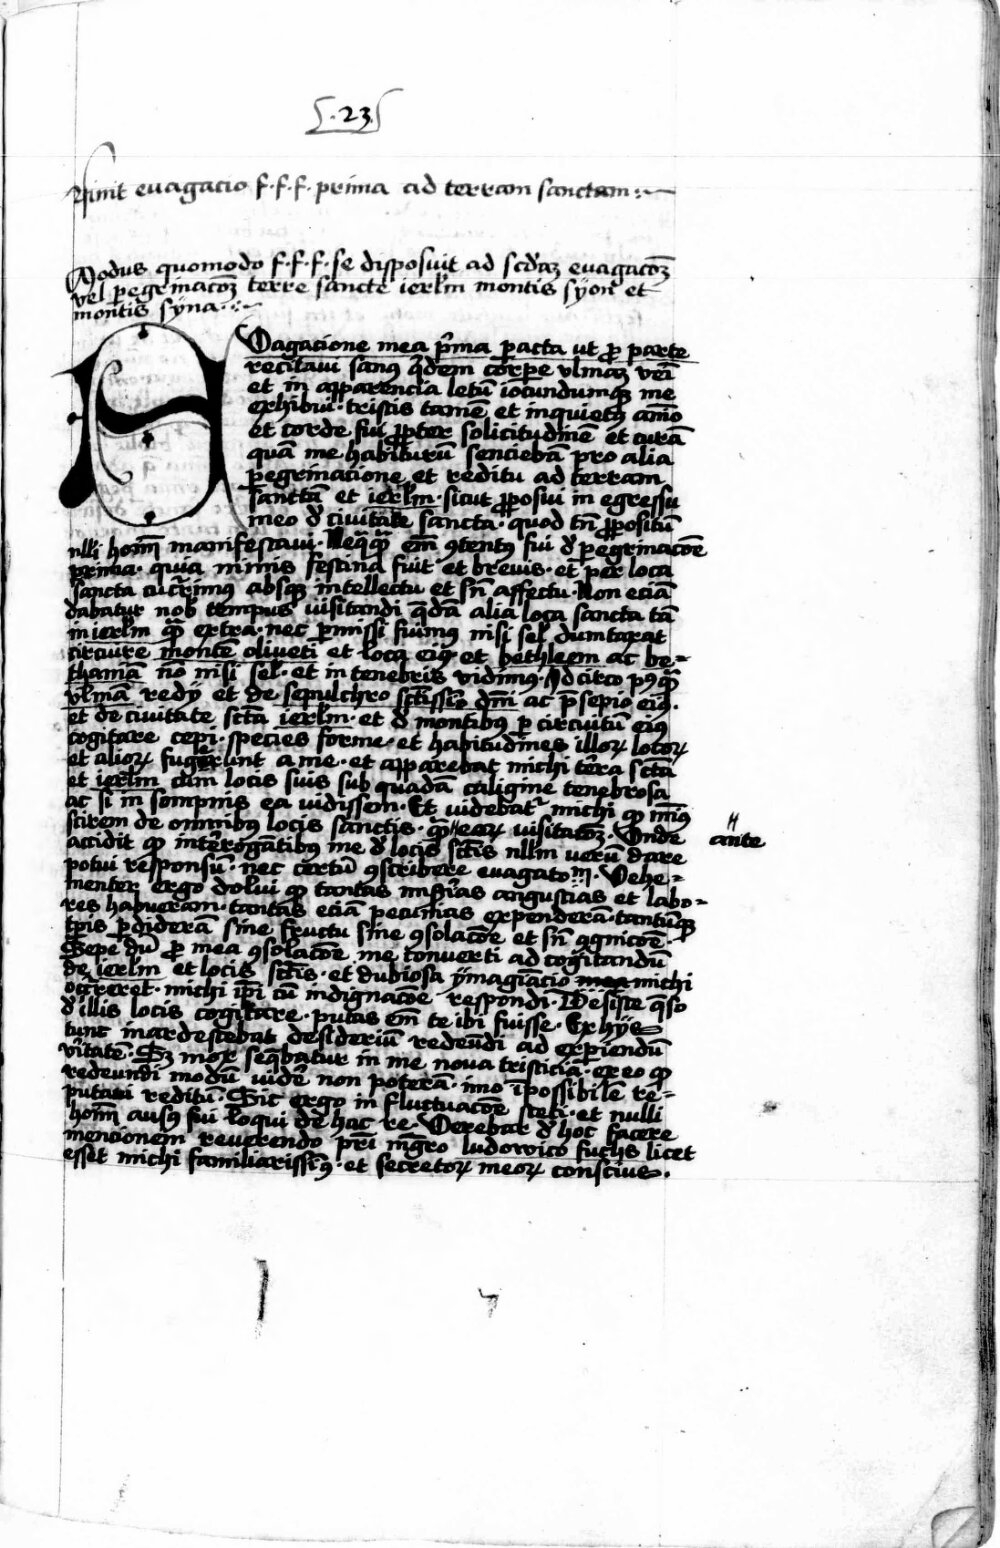 .23.
Finit evagacio f.f.f. prima ad terram sanctam :~
Modus quomodo f.f.f. se disposuit ad scdaz evagacoz
vel pegrinacoz terre sancte ierlm montis syon et
montis syna .:~
Evagacione mea pma pacta ut p parte
recitavi sanus qdem corpe vlmaz veni
et in apparencia letu iocundumqz me
exhibui. tristis tamē et inquietus aīo
et corde fui ppter solicitudinē et curā
quā me habiturū senciebā pro alia
pegrinacione et reditu ad terram
sanctā et ierlm. sicut pposui in egressu
meo d civitate sancta. quod tn ppositū
nlli homī manifestavi. Neqq em 9tentus fui d pegrinacōe
prima. quia nimis festina fuit et brevis. et per loca
sancta cucrimus absqz intellectu et sn affectu. Non eciā
dabatur nob tempus visitandi qdā alia loca sancta tā
in ierlm q̄ extra. nec pmissi fuimus nisi sel dumtaxat
circuire montē oliveti et loca eius. et bethleem ac be-
thaniam nō nisi sel. et in tenebris vidimus. Idcirco p9q̄
vlmā redij et de sepulchro sctissīo dnī ac psepio eius.
et de civitate sctā ierlm. et d montibus p circuitū eius
cogitare cepi. species forme. et habitudines illorz locorz
et aliorz fugerunt a me. et apparebat michi terra sctā
et ierlm cum locis suis sub quadā caligine tenebrosa
ac si in sompnis ea vidissem. Et videbatr michi qp min9
scirem de omnibus locis sanctis. q̄ " eorz visitacōz. Unde
ante
accidit qp interrogatibus me d locis sctis nllm verū dare
potui responsū. nec certū 9scribere evagatoriū. Vehe-
menter ergo dolui qp tantas miserias angustias et labo-
res habueram. tantas eciā pecunias expenderā. tantūqz
tpis pdiderā sine fructu sine 9solacōe et sn 9gnicōe.
Sepe dū p mea 9solacōe me converti ad cogitandū
de ierlm et locis sctis. et dubiosa ymagiacio mea michi
occrreret. michi ipī cū indignacōe respondi. Desiste qso
d illis locis cogitare. putas em te ibi fuisse. Ex hijs
tunc inardescebat desideriū redeundi ad expiendū
vītatē. Sz mox seqbatur in me nova tristicia. ex eo qp
redeundi modū videre non poterā. imo īpossibile re-
putavi reditū. Sic ergo in fluctuacōe steti. et nulli
homī ausus fui loqui de hac re. Verebar d hoc facere
mencionem reverendo pri mgro ludowico fuchs licet
esset michi familiarissim9. et secretorz meorz conscius.